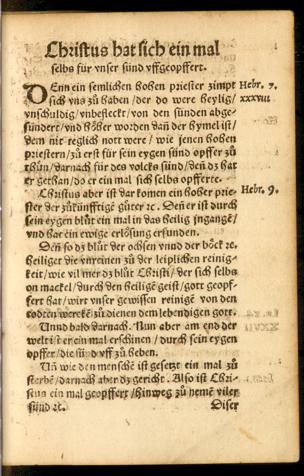 Christus hat sich ein mal
selbs für vnser sünd vffgeopffert.
DEnn ein semlichen hohen priester zimpt
Hebr. 7.
sich vns zů haben / der do were heylig /
xxxviii
vnschuldig / vnbefleckt / von den sünden abge-
sündert / vnd höher worden dañ der hymel ist /
dem nit teglich nott were / wie jenen hohen
priestern / zů erst für sein eygen sünd opffer zů
thůn / darnach für des volcks sünd / deñ dz hat
er gethan / do er ein mal sich selbs opfferte.
Christus aber ist dar komen ein hoher prie-
Hebr. 9.
ster der zůkünfftigē gůter ꝛc. Deñ er ist durch
sein eygen blůt ein mal in das heilig jngangē /
vnd hat ein ewige erlösung erfunden.
Deñ so dz blůt der ochsen vnnd der böck ꝛc.
heiliget die vnreinen zů der leiplichen reinig-
keit / wie vil mer dz blůt Christi / der sich selbs
on mackel / durch den heiligē geist / gott geopf-
fert hat / wirt vnser gewissen reinigē von den
todten wercken zů dienen dem lebendigen gott.
Vnnd bald darnach. Nun aber am end der
welt ist er ein mal erschinen / durch sein eygen
opffer / die sünd vff zů heben.
Vñ wie den menschē ist gesetzt ein mal zů
sterbē / darnach aber dz gericht. Also ist Chri-
stus ein mal geopffert / hinweg zů nemē viler
sünd ꝛc.
Diser